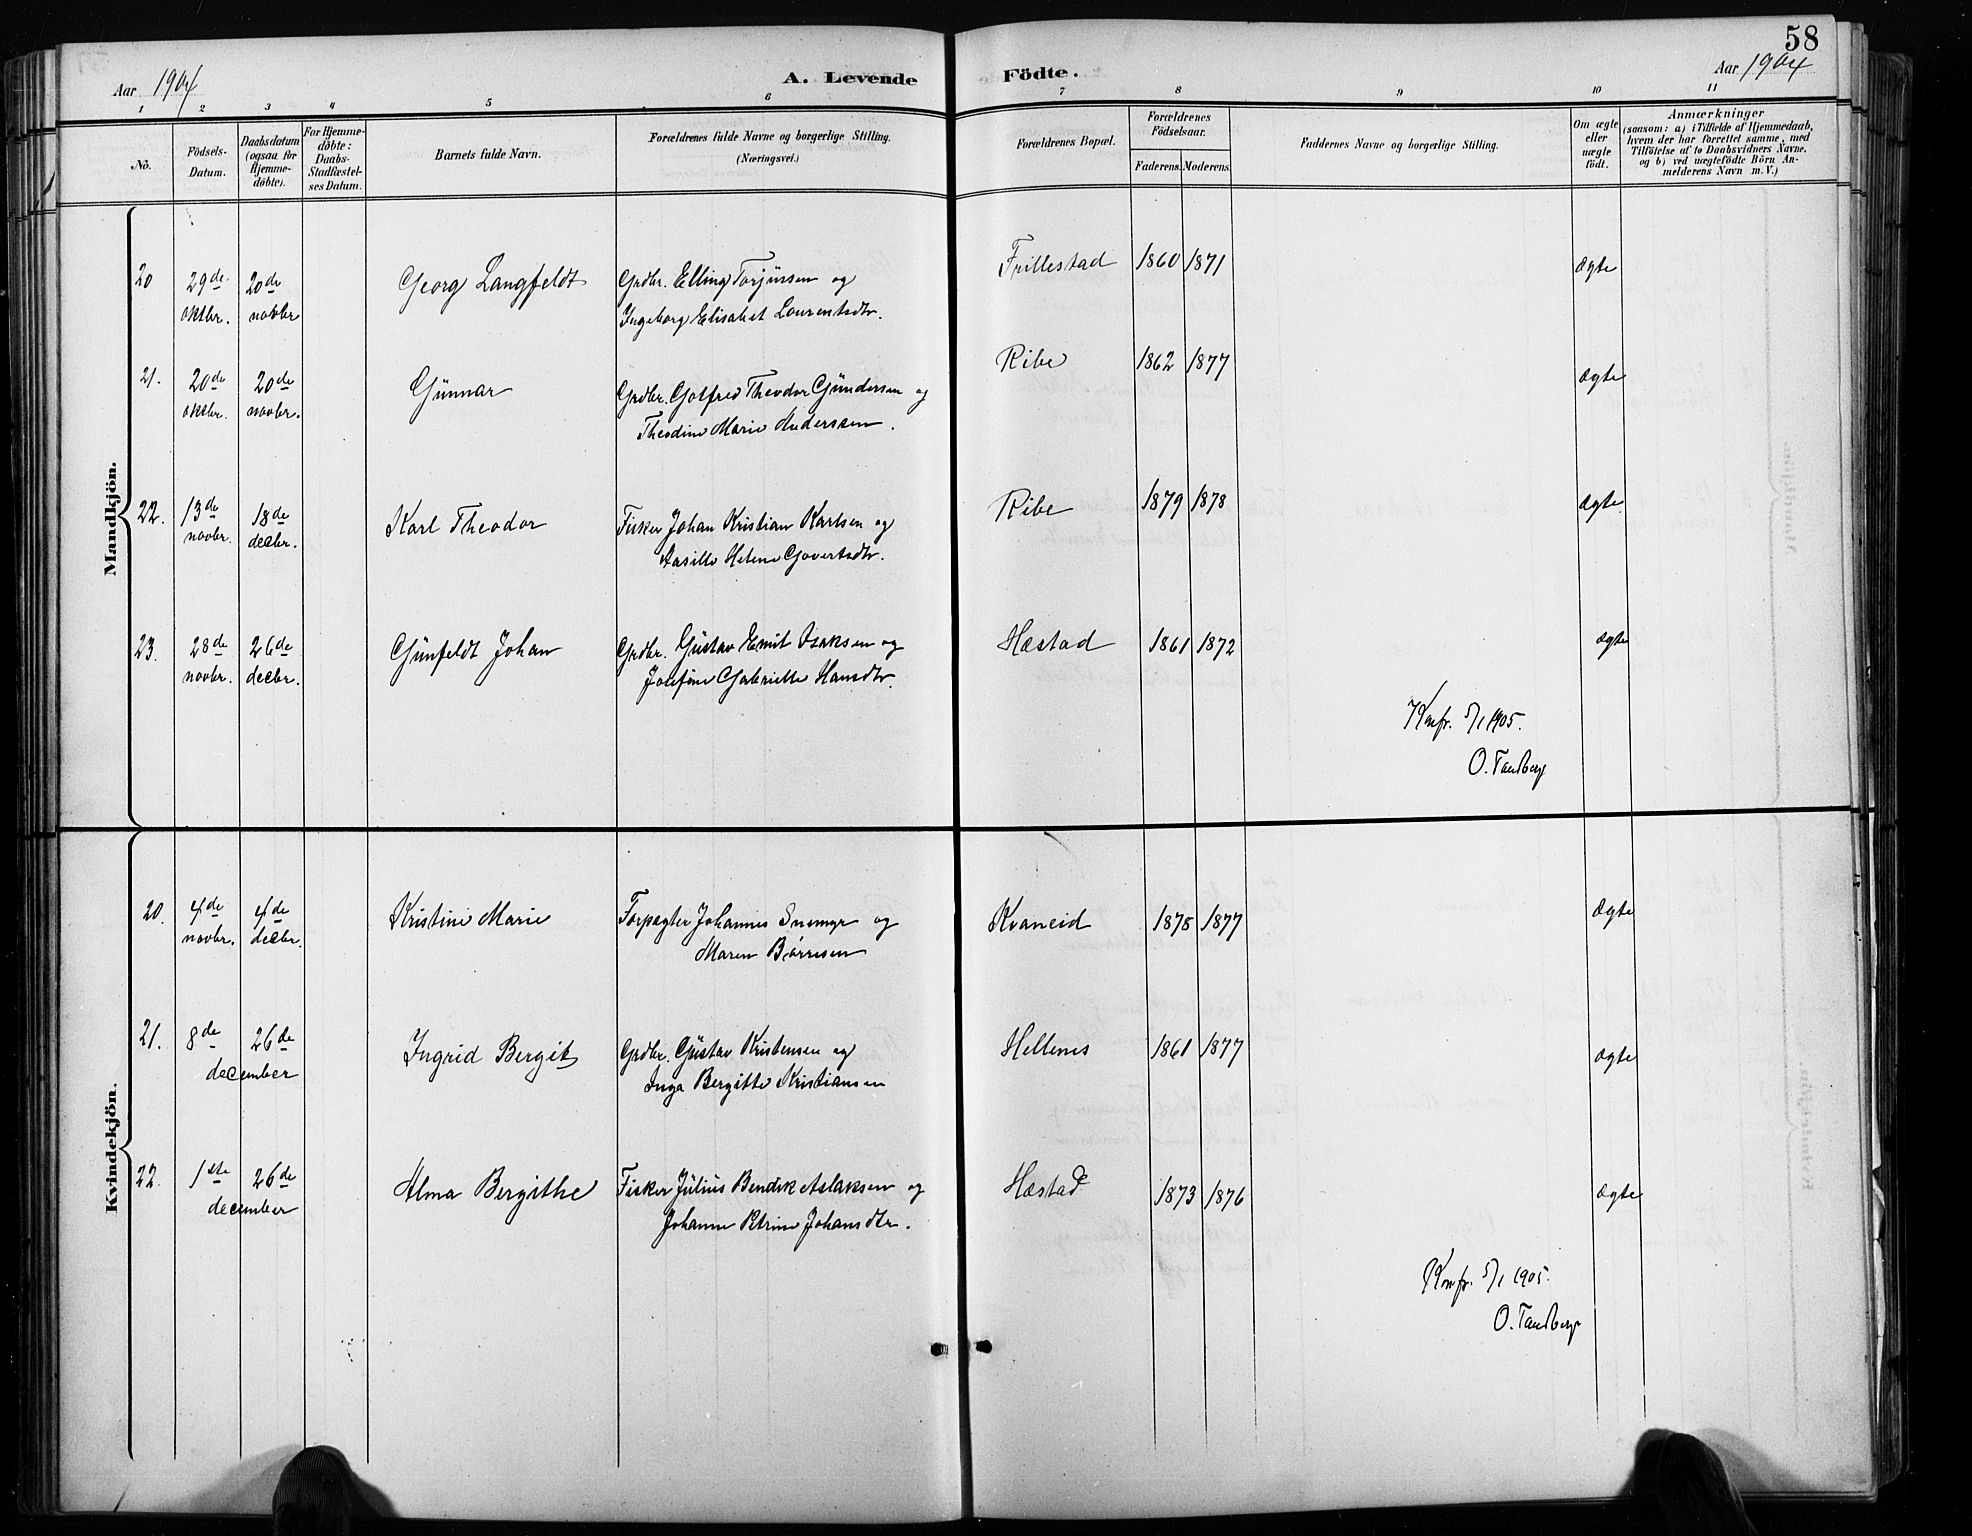 58
Aar 1904
A. Levende Födte.
Aar 1904
1 2 3 4 5 6 7 8 9 10 11
No.
Födsels-Datum.
Daabsdatum (ogsaa for Hjemme-döbte).
For Hjemme-döbte: Daabs-Stadfæstel-ses Datum.
Barnets fulde Navn.
Forældrenes fulde Navne og borgerlige Stilling.
(Næringsvei.)
Forældrenes Bopæl.
Forældrenes Födselsaar.
Faderens. Moderens.
Faddernes Navne og borgerlige Stilling.
Om ægte eller uægte födt.
Anmærkninger
(saasom: a) i Tilfælde af Hjemmedaab,
hvem der har forrettet samme, med
Tilföielse af to Daabsvidners Navne.
og b) ved uægtefödte Börn An-
melderens Navn m. V.)
Mandkjön.
20 29de 20de Georg Langfeldt Grdbr. Elling Torjüssen og Frillestad 1860 1871 Ægte
oktbr. novbr Ingeborg Elisabet Laurentsdtr.
21. 20de 20de Günnar Grdbr. Gotfred Theodor Gündersen og Ribe 1862 1877 Ægte
oktbr. novbr. Theodine Marie Anderssen.
22. 13de 18de Karl Theodor Fisker Johan Kristian Karlsen og Ribe 1879 1878 Ægte
novbr. decbr. Aasille Helene Govertsdtr.
23. 28de 26de Günfeldt Johan Grdbr. Güstav Emil Isaksen og Hæstad 1861 1872 Ægte
novbr. decbr. Josefine Gabrielle Hansdtr.
Konfr. 5/1 1905.
O. Tandberg
Kvindekjön.
20. 4de 4de Kristine Marie Forpagter Johannes Snemyr og Kvaneid 1875 1877 Ægte
novbr. decbr. Maren Børresen
21. 8de 26de Ingrid Bergit Grdbr. Güstav Kristensen og Hellenes 1861 1877 Ægte
december Inga Bergitte Kristiansen
22. 1ste 26de Alma Bergithe Fisker Jülius Bendik Aslaksen og Hæstad 1873 1876 Ægte
december Johanne Petrine Johansdtr.
Konfr. 5/1 1905.
O. Tandberg